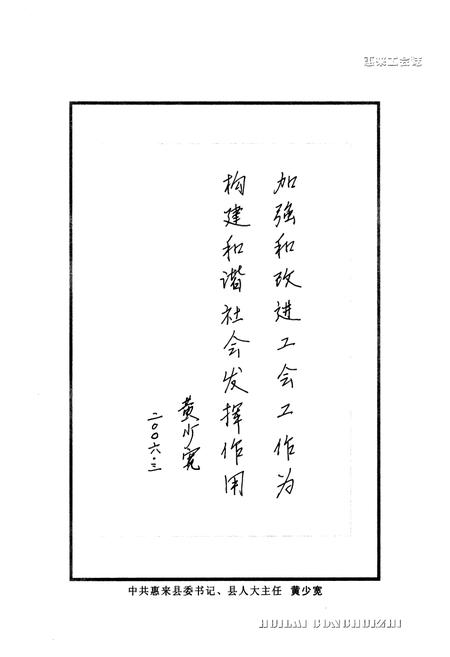 惠来工会志
加强和改进工会工作为
构建和谐社会发挥作用
黄少宽
二〇〇六.三
中共惠来县委书记、县人大主任 黄少宽
HUILAI GONGHUIZHI